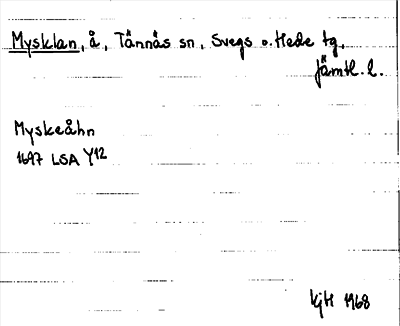 Mysklan, å, Tännäs sn, Svegs o. Hede tg,
Jämtl. l.
Myskeåhn
1697 LSA Y12
KjH 1968